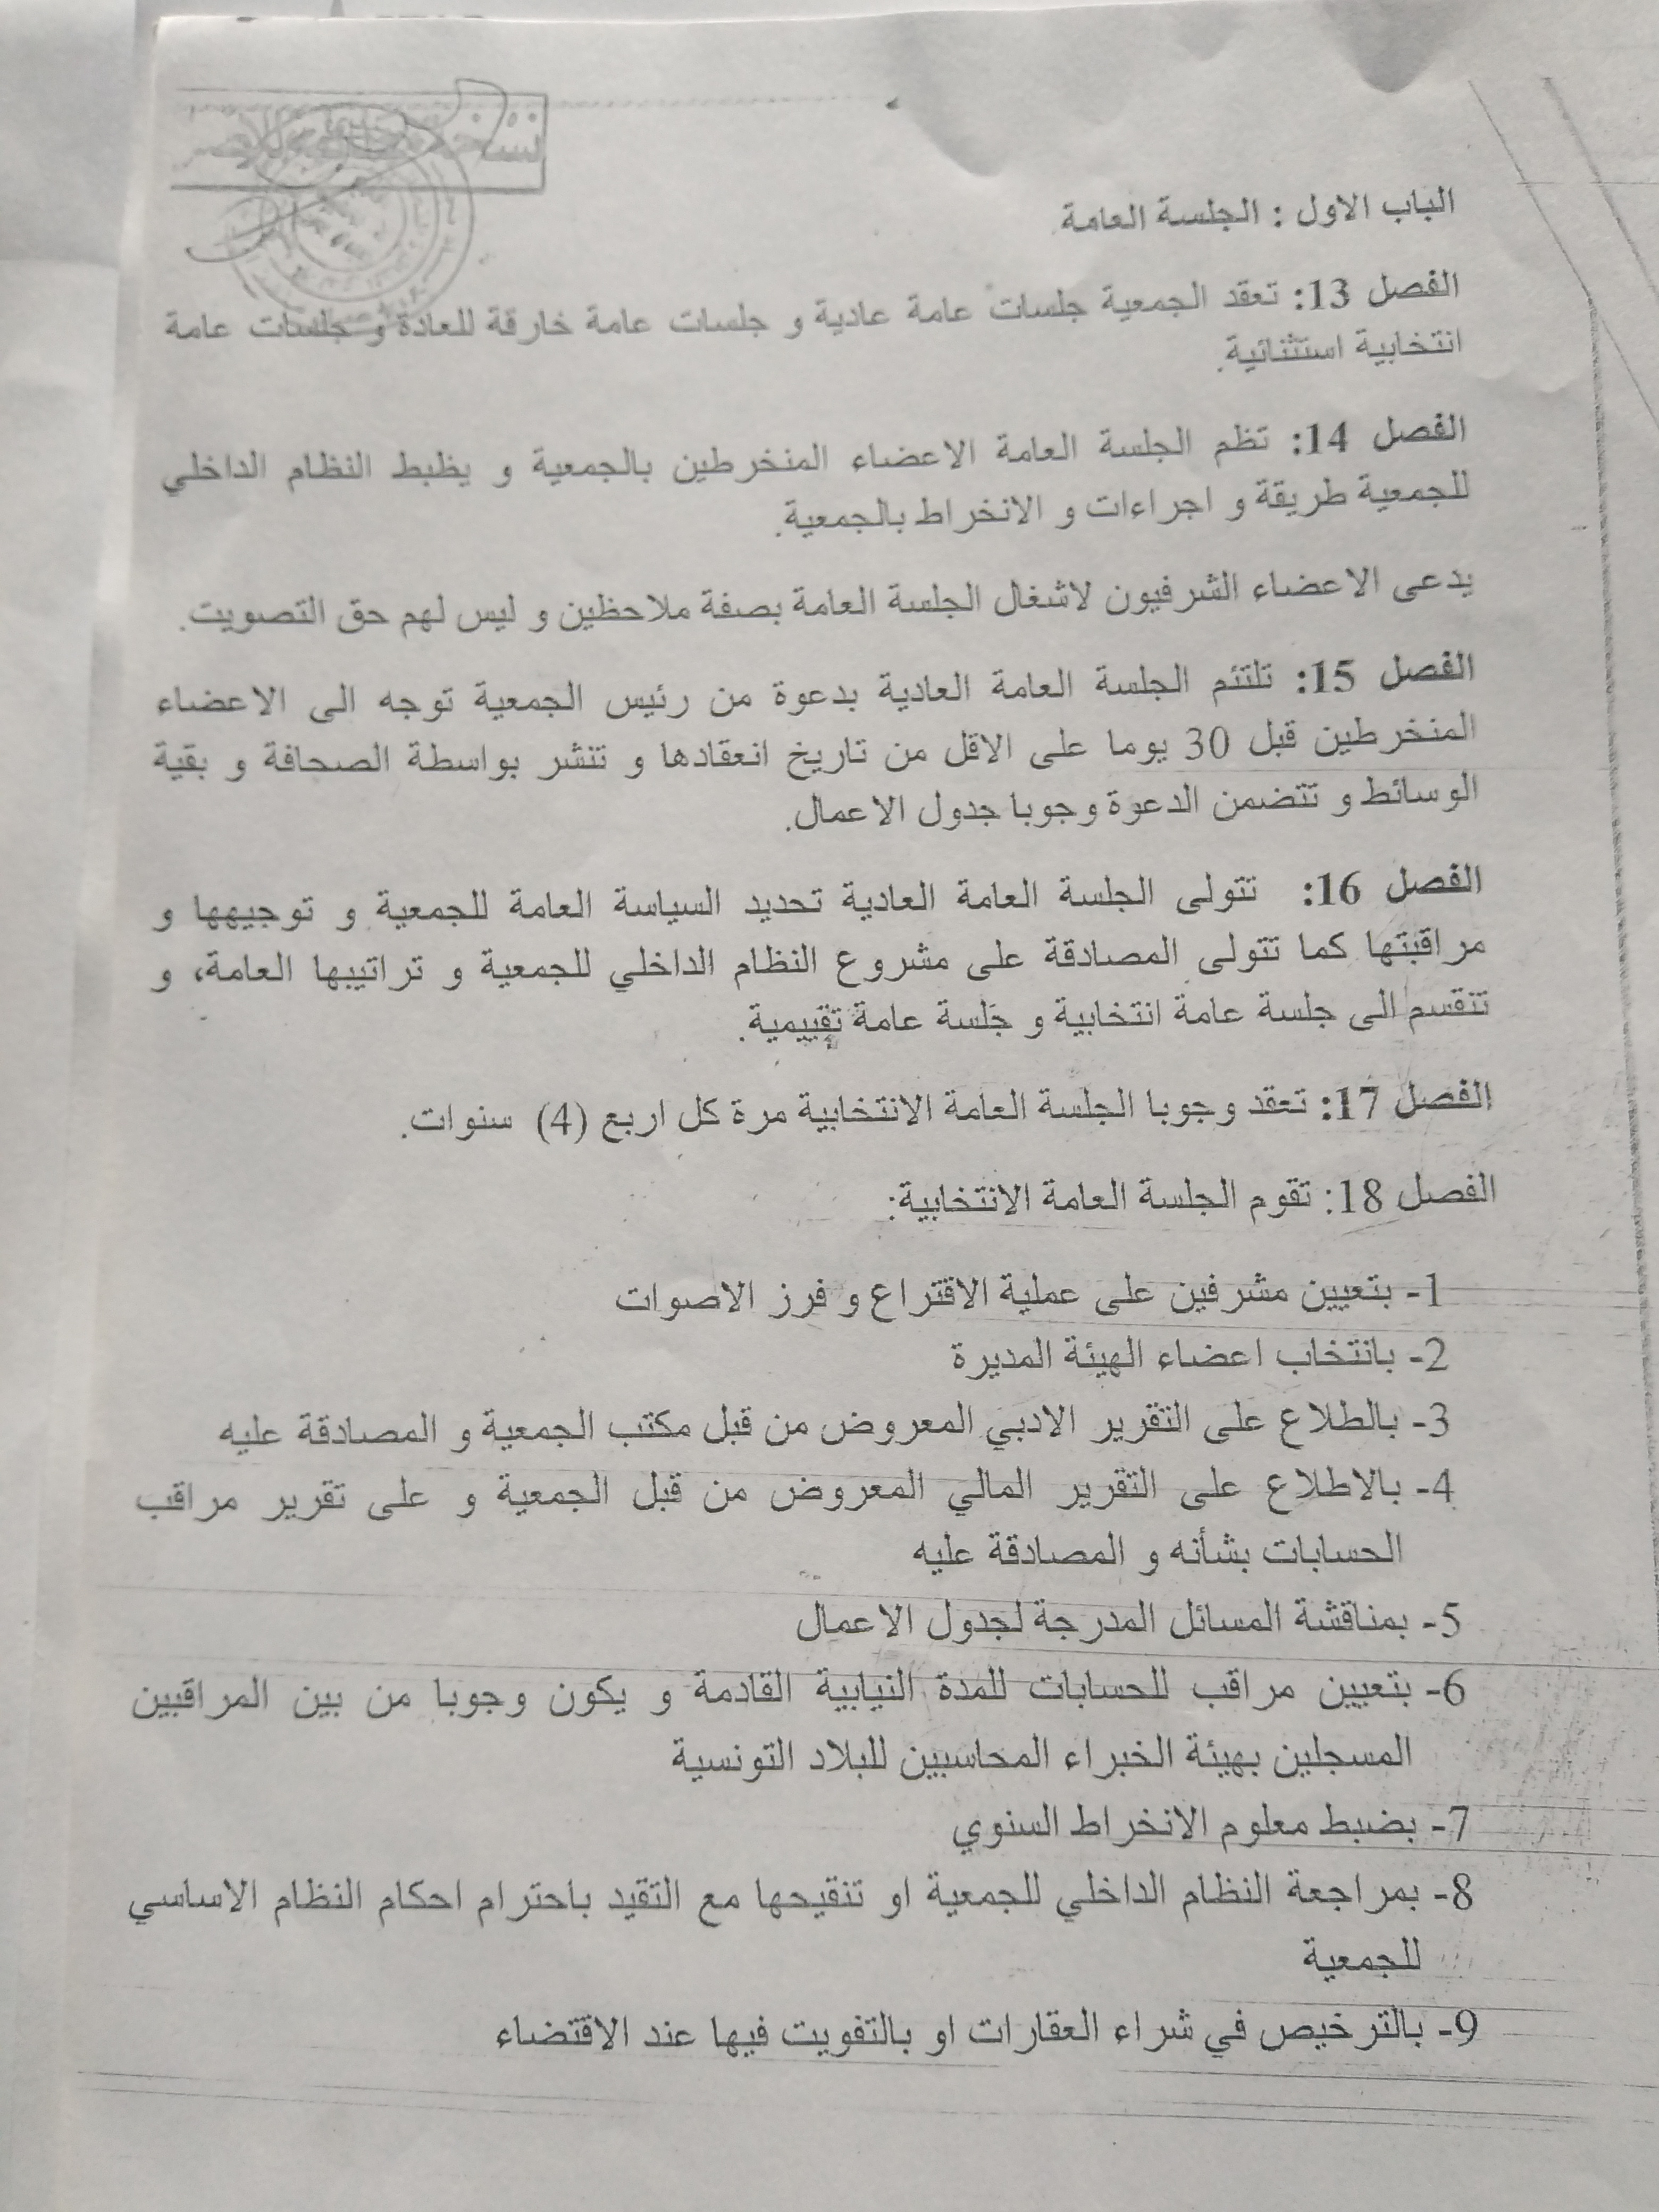 الباب الاول : الجلسة العامة
الفصل 13: تعقد الجمعية جلسات عامة عادية و جلسات عامة خارقة للعادة و جلسات عامة
انتخابية استثنائية.
الفصل 14: تظم الجلسة العامة الاعضاء المنخرطين بالجمعية و يظبط النظام الداخلي
للجمعية طريقة و اجراءات و الانخراط بالجمعية.
يدعى الاعضاء الشرفيون لاشغال الجلسة العامة بصفة ملاحظين و ليس لهم حق التصويت.
الفصل 15: تلتئم الجلسة العامة العادية بدعوة من رئيس الجمعية توجه الى الاعضاء
المنخرطين قبل 30 يوما على الاقل من تاريخ انعقادها و تنشر بواسطة الصحافة و بقية
الوسائط و تتضمن الدعوة وجوبا جدول الاعمال.
الفصل 16: تتولى الجلسة العامة العادية تحديد السياسة العامة للجمعية و توجيهها و
مراقبتها كما تتولى المصادقة على مشروع النظام الداخلي للجمعية و تراتيبها العامة، و
تنقسم الى جلسة عامة انتخابية و جلسة عامة تقييمية.
الفصل 17: تعقد وجوبا الجلسة العامة الانتخابية مرة كل اربع (4) سنوات.
الفصل 18: تقوم الجلسة العامة الانتخابية:
1- بتعيين مشرفين على عملية الاقتراع و فرز الاصوات
2- بانتخاب اعضاء الهيئة المديرة
3- بالطلاع على التقرير الادبي المعروض من قبل مكتب الجمعية و المصادقة عليه
4- بالاطلاع على التقرير المالي المعروض من قبل الجمعية و على تقرير مراقب
الحسابات بشأنه و المصادقة عليه
5- بمناقشة المسائل المدرجة لجدول الاعمال
6- بتعيين مراقب للحسابات للمدة النيابية القادمة و يكون وجوبا من بين المراقبين
المسجلين بهيئة الخبراء المحاسبين للبلاد التونسية
7- بضبط معلوم الانخراط السنوي
8- بمراجعة النظام الداخلي للجمعية او تنقيحها مع التقيد باحترام احكام النظام الاساسي
للجمعية
9- بالترخيص في شراء العقارات او بالتفويت فيها عند الاقتضاء